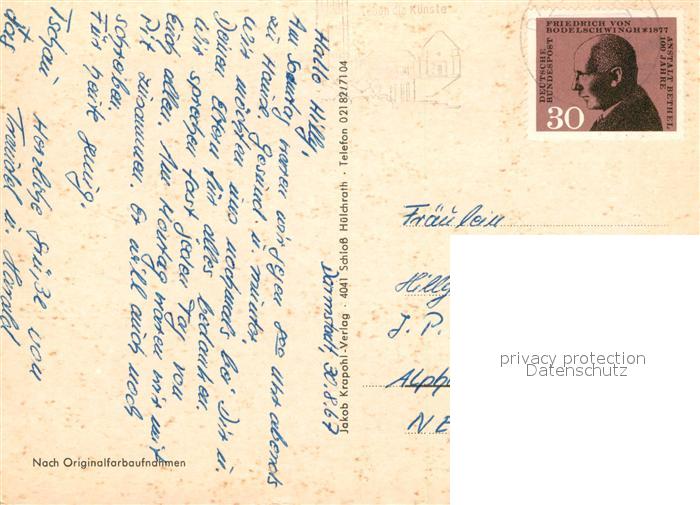 Darmstadt, 30.8.67
Hallo Hilly,
Am Sonntag waren wir gegen 8 00 Uhr abends
zu Hause. Gesund u. munter.
Wir möchten uns nochmals bei Dir u.
Deinen Eltern für alles bedanken.
Wir sprechen fast jeden Tag von
Euch allen. Am Montag waren wir mit
Pit zusammen. Er will auch noch
schreiben.
Für heute genug.
Herzliche Grüße von
Traudel u. Harald
Tschau
Jakob Krapohl-Verlag · 4041 Schloß Hülchrath · Telefon 02182/7104
Nach Originalfarbaufnahmen
die Künste
FRIEDRICH VON
BODELSCHWINGH † 1877
DEUTSCHE
BUNDESPOST
ANSTALT BETHEL
100 JAHRE
30
Fräulein
Hilly
J. P.
NE
privacy protection
Datenschutz